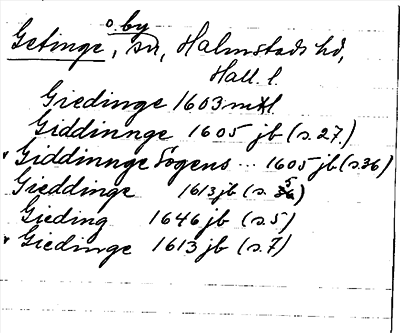 o. by
Getinge, sn, Halmstads hd,
Hall. l.
Giedinge 1603 mtl
Giddinnge 1605 jb (s. 27.)
Giddinnge Sogens ... 1605 jb (s. 36)
Gieddinge 1613 jb (s. 5)
Gieding 1646 jb (s. 5)
Giedinge 1613 jb (s. 7)